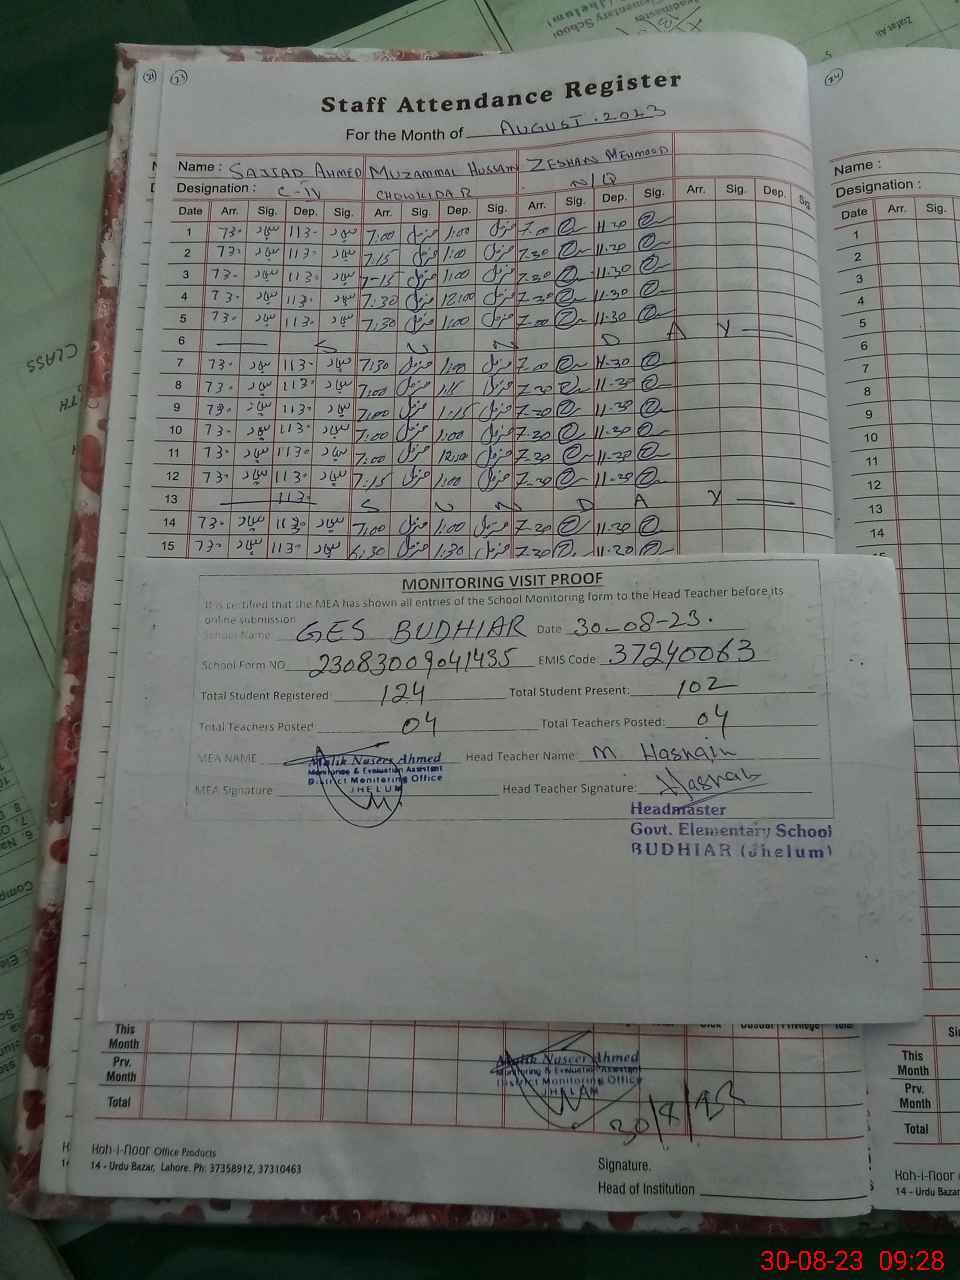 71
73
Staff Attendance Register
For the Month of AUGUST.2023
Name : SAJJAD AHMED MUZAMMAL HUSSAIN ZESHAN MEHMOOD
Designation : C-IV CHOWKIDAR N/Q
Date Arr. Sig. Dep. Sig. Arr. Sig. Dep. Sig. Arr. Sig. Dep. Sig. Arr. Sig. Dep. Sig.
1 730 سجاد 1130 سجاد 7:00 مزمل 1:00 مزمل 7.00 11.30
2 730 سجاد 1130 سجاد 7:15 مزمل 1:00 مزمل 7.30 11.30
3 730 سجاد 1130 سجاد 7-15 مزمل 1:00 مزمل 7.30 11.30
4 730 سجاد 1130 سجاد 7:30 مزمل 12:00 مزمل 7.30 11.30
5 730 سجاد 1130 سجاد 7:30 مزمل 1:00 مزمل 7.00 11.30
6 S U N D A Y
7 730 سجاد 1130 سجاد 7:30 مزمل 1:00 مزمل 7.00 11.30
8 730 سجاد 1130 سجاد 7:00 مزمل 1:15 مزمل 7.30 11.30
9 730 سجاد 1130 سجاد 7:00 مزمل 1:15 مزمل 7.30 11.30
10 730 سجاد 1130 سجاد 7:00 مزمل 1:00 مزمل 7.30 11.30
11 730 سجاد 1130 سجاد 7:00 مزمل مزمل 7.30 11.30
12 730 سجاد 1130 سجاد 7:15 مزمل 1:00 مزمل 7.30 11.30
13 1130 S U N D A Y
14 730 سجاد 1130 سجاد 7:00 مزمل 1:00 مزمل 7.30 11.30
15 730 سجاد 1130 سجاد 6:30 مزمل 1:30 مزمل 7.30 11.20
MONITORING VISIT PROOF
It is certified that the MEA has shown all entries of the School Monitoring form to the Head Teacher before its
online submission
School Name: GES BUDHIAR Date 30-08-23.
School Form NO 23083009041435 EMIS Code 37240063
Total Student Registered: 124 Total Student Present: 102
Total Teachers Posted: 04 Total Teachers Posted: 04
MEA NAME Malik Naseer Ahmed Head Teacher Name: M. Hasnain
Monitoring & Evaluation Assistant
District Monitoring Office
JHELUM
MEA Signature Head Teacher Signature: Hasnain
Headmaster
Govt. Elementary School
BUDHIAR (Jhelum)
This Month
Prv. Month
Total
Malik Naseer Ahmed
Monitoring & Evaluation Assistant
District Monitoring Office
JHELAM
30/8/23
Koh-i-Noor Office Products
14 - Urdu Bazar, Lahore. Ph: 37358912, 37310463
Signature.
Head of Institution
74
Name :
Designation :
Date Arr. Sig.
1
2
3
4
5
6
7
8
9
10
11
12
13
14
15
This Month
Prv. Month
Total
Koh-i-Noor
14 - Urdu Bazar
30-08-23 09:28